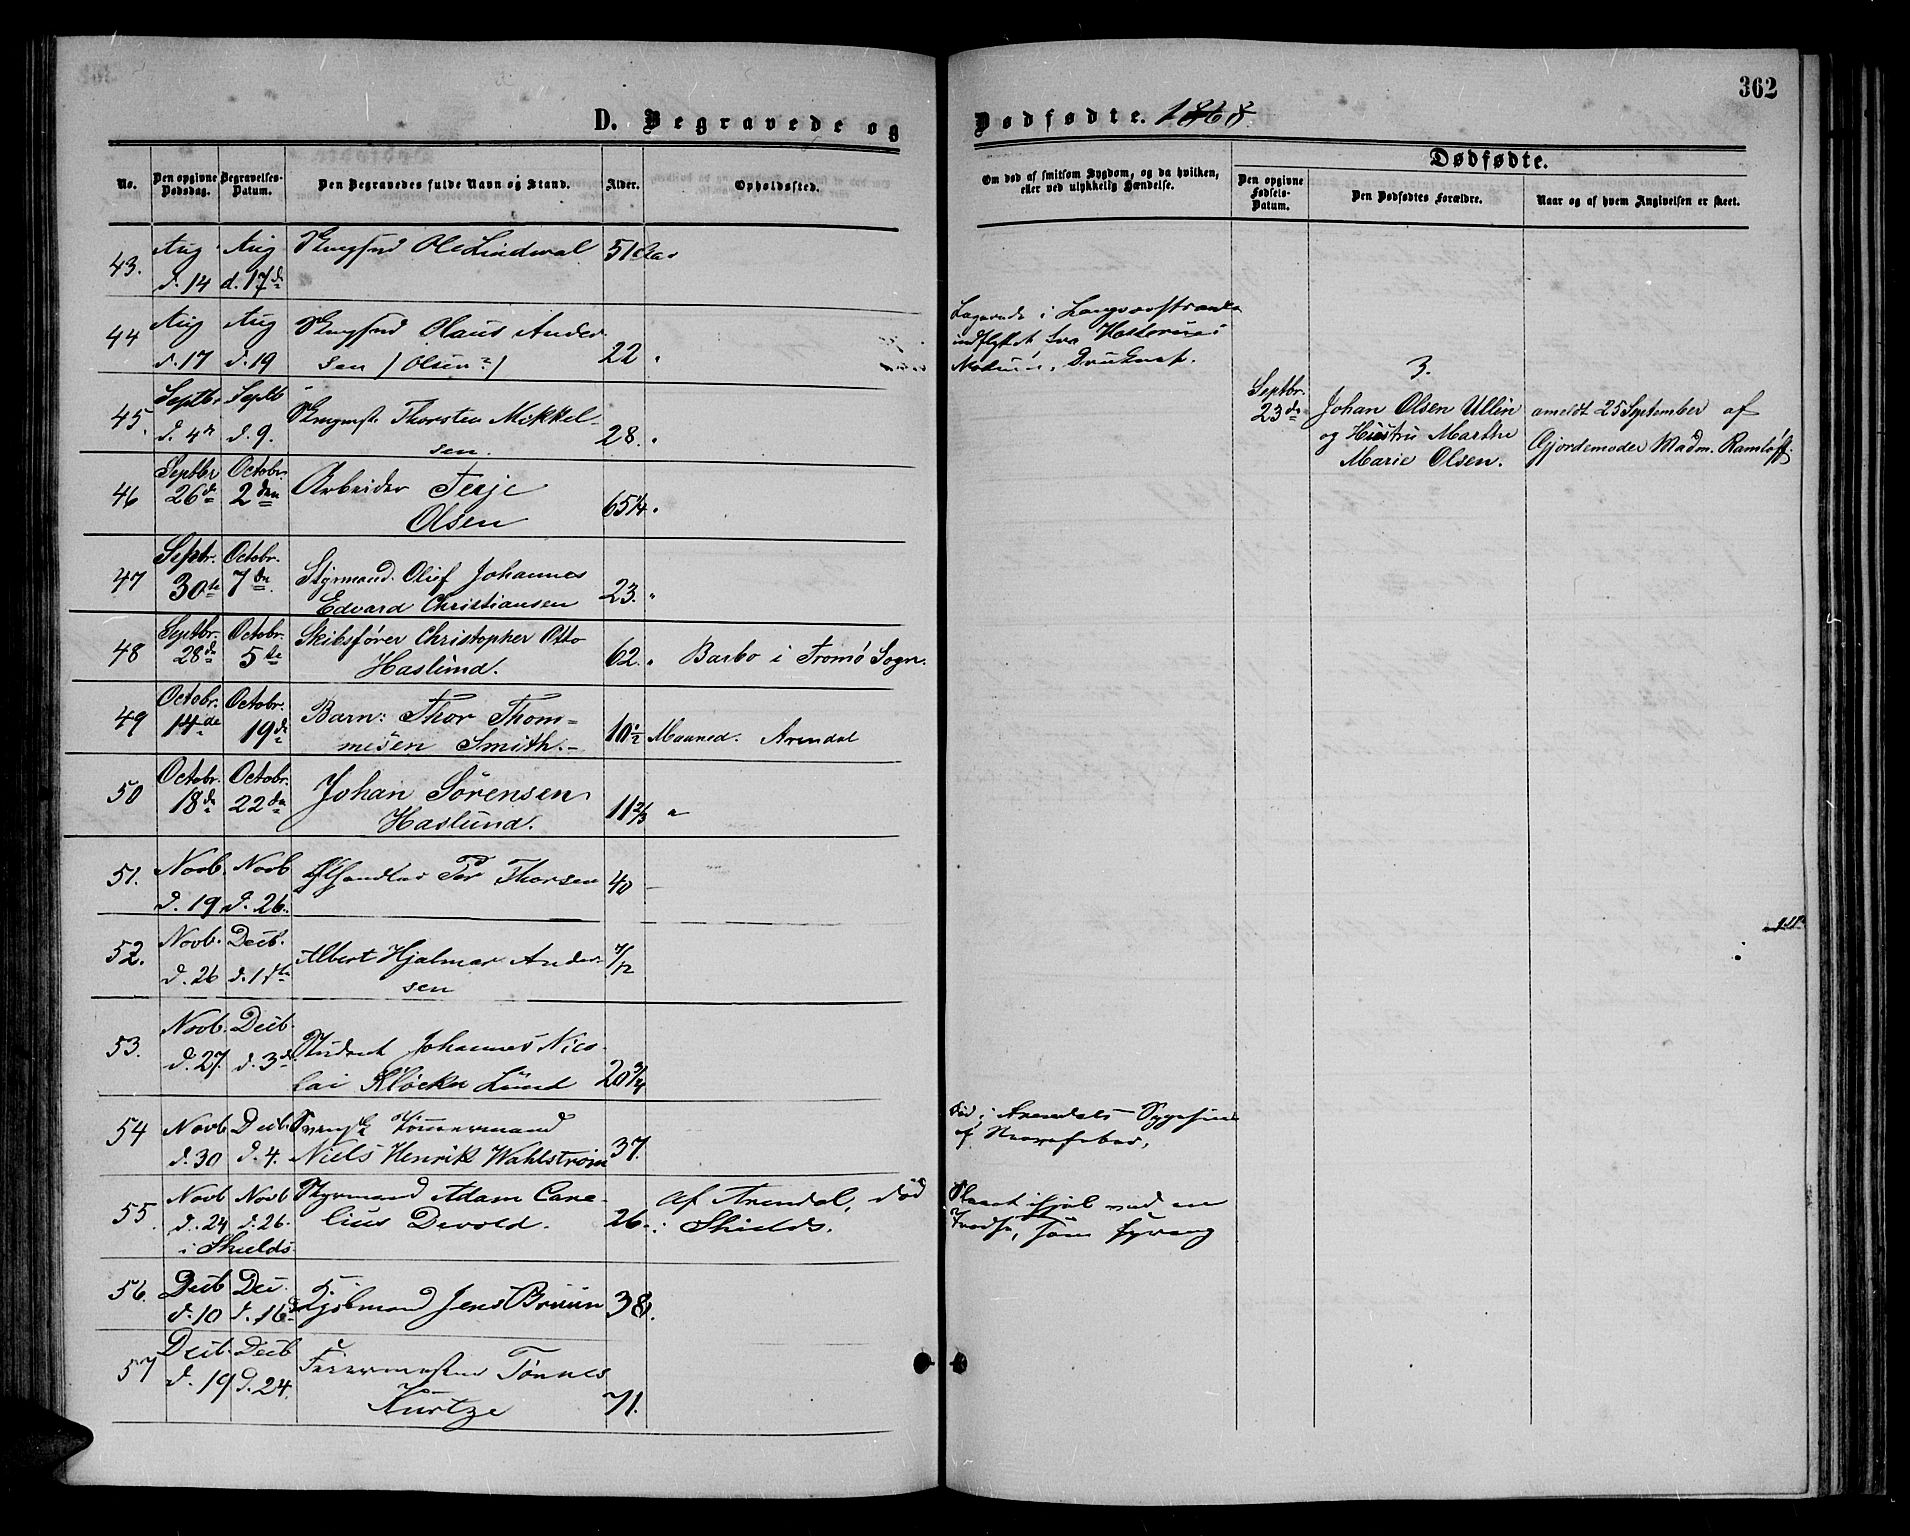 362
D. Begravede og Dødfødte. 1868.
Dødfødte.
No.
Den opgivne Dødsdag.
Begravelses-Datum.
Den Begravedes fulde Navn og Stand.
Alder.
Opholdssted.
Om død af smitsom Sygdom, og da hvilken, eller ved ulykkelig Hændelse.
Den opgivne Fødsels-Datum.
Den Dødfødtes Forældre.
Naar og af hvem Angivelsen er skeet.
43. Aug d. 14 Aug d. 17de Ole Lindwal 51
44 Aug d. 17 Aug d. 19 Olaus Ander
sen (Olsen?) 22 "
indflyttet fra
45. Septbr. d. 4de Septb d. 9. Thorsten Mikkel-
sen. 28. "
46 Septbr 26de Octobr. 2den Arbeider Terje
Olsen 65 1/4 "
47 Septbr. 30te Octobr. 7de Styrmand. Oluf Johannes
Edvard Christiansen 23. "
48 Septbr. 28de Octobr. 5te Skibsfører Christopher Otto
Haslund. 62. " Barbo i Tromö Sogn.
49 Octobr. 14de Octobr. 19de Barn: Thor Thom=
mesen Smith.- 10 1/2 Maaned. Arendal
50 Octobr. 18de Octobr. 22de Johan Sörensen
Haslund. 11 2/3 "
51. Novb. d. 19 Novb d. 26. Thorsen 40 -
52. Novb. d. 26 Decb. d. 1ste Albert Hjalmar Ander-
sen 7/12
53. Novb. d. 27. Decb. d. 3de Student Johannes Nico-
lai Klöcker Lund 20 3/4
54 Novb. d. 30 Decb. d. 4. Svensk Tömmermand
Niels Henrik Wahlström 37.
Död i Arendals Sygehuus
af Nervefeber.
55. Novb d. 24 i Shields Novb d. 26. Styrmand Adam Corne-
lius Devold. 26. af Arendal, död
i Shields.
Slaaet ihjel ved en
Tredse, som sprang
56. Decb d. 10 Dec. d. 16de Kjöbmand Jens Bruun 38.
57 Decb. d. 19 Decb d. 24. Farvermester Tönnes
Kurtze 71.
3.
Septbr. 23de
Johan Olsen Ullin
og Hustru Marthe
Marie Olsen.
anmeldt 25 September af
Gjordemoder Madm. Ramlöff.